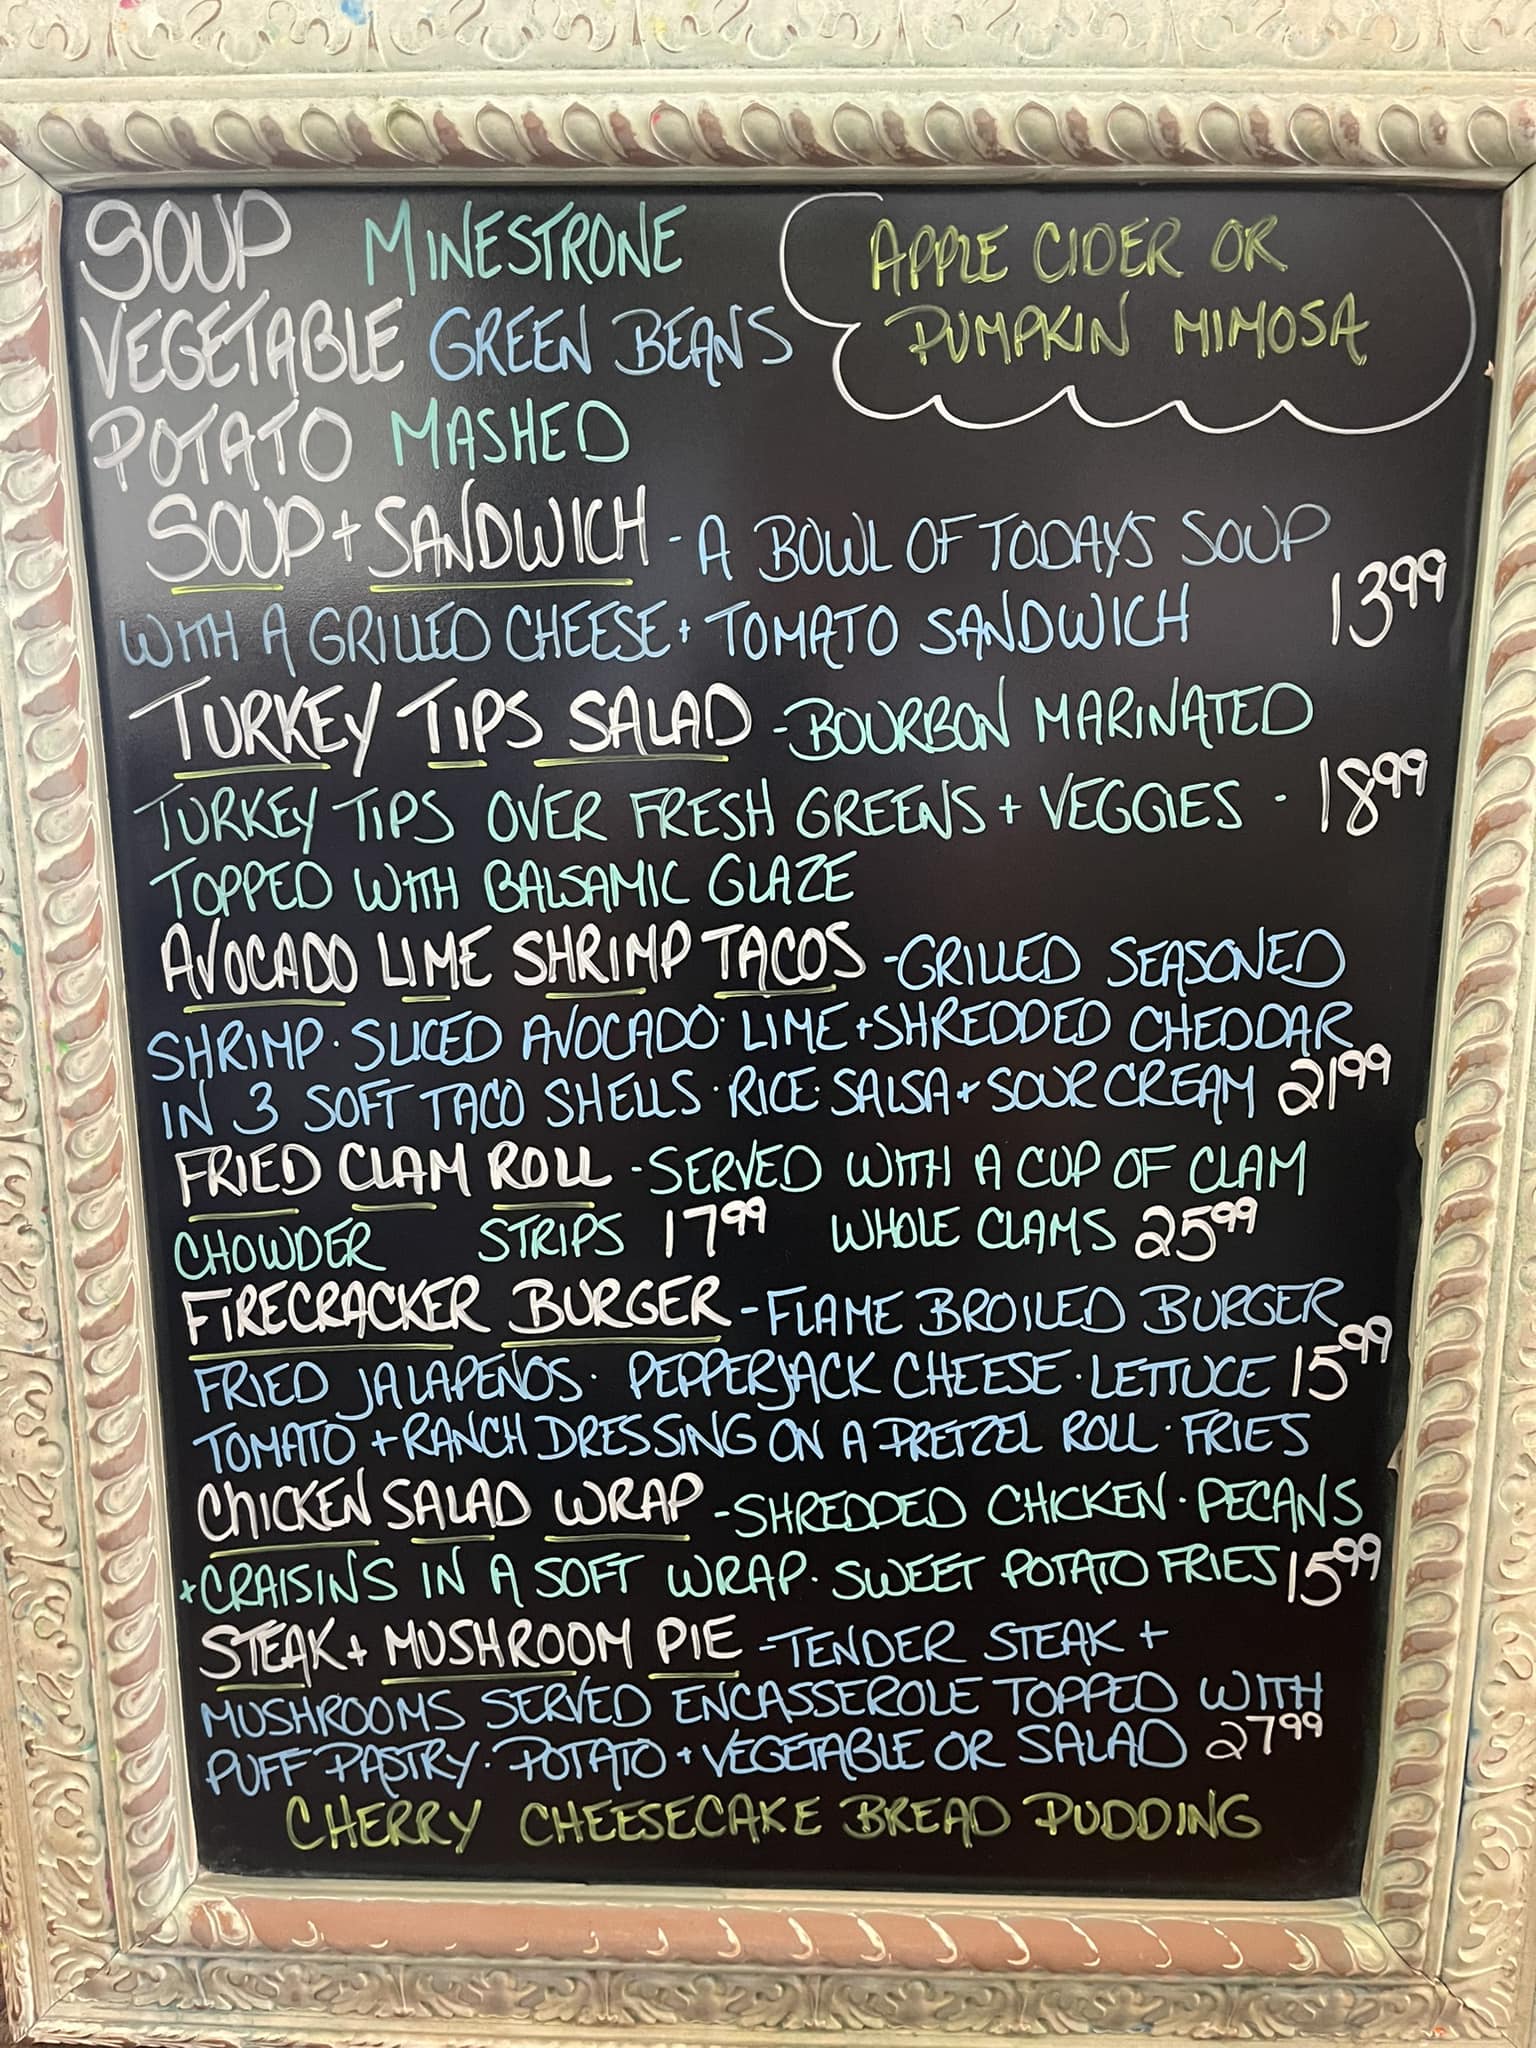 SOUP MINESTRONE
VEGETABLE GREEN BEANS
POTATO MASHED
APPLE CIDER OR
PUMPKIN MIMOSA
SOUP + SANDWICH - A BOWL OF TODAYS SOUP
WITH A GRILLED CHEESE + TOMATO SANDWICH 13.99
TURKEY TIPS SALAD - BOURBON MARINATED
TURKEY TIPS OVER FRESH GREENS + VEGGIES · 18.99
TOPPED WITH BALSAMIC GLAZE
AVOCADO LIME SHRIMP TACOS - GRILLED SEASONED
SHRIMP · SLICED AVOCADO · LIME + SHREDDED CHEDDAR
IN 3 SOFT TACO SHELLS · RICE · SALSA + SOUR CREAM 21.99
FRIED CLAM ROLL - SERVED WITH A CUP OF CLAM
CHOWDER STRIPS 17.99 WHOLE CLAMS 25.99
FIRECRACKER BURGER - FLAME BROILED BURGER
FRIED JALAPEÑOS · PEPPERJACK CHEESE · LETTUCE 15.99
TOMATO + RANCH DRESSING ON A PRETZEL ROLL · FRIES
CHICKEN SALAD WRAP - SHREDDED CHICKEN · PECANS
+ CRAISINS IN A SOFT WRAP · SWEET POTATO FRIES 15.99
STEAK + MUSHROOM PIE - TENDER STEAK +
MUSHROOMS SERVED ENCASSEROLE TOPPED WITH
PUFF PASTRY · POTATO + VEGETABLE OR SALAD 27.99
CHERRY CHEESECAKE BREAD PUDDING